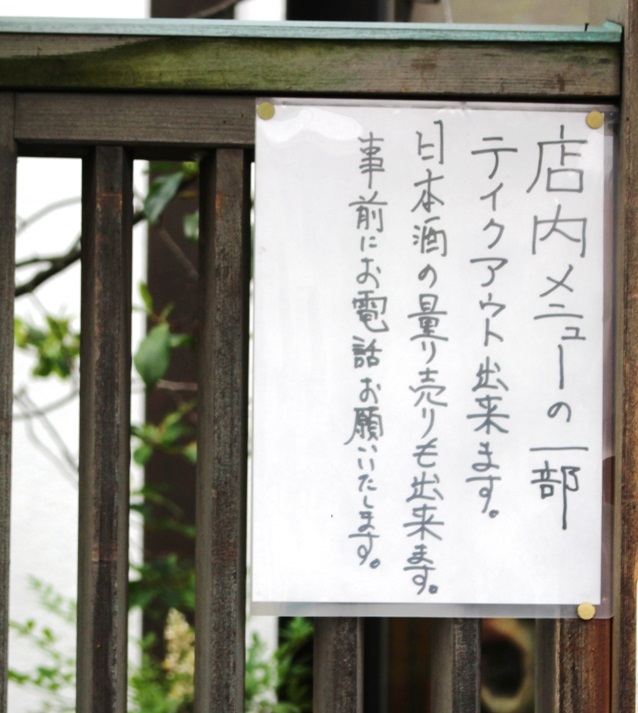 店内メニューの一部
テイクアウト出来ます。
日本酒の量り売りも出来ます。
事前にお電話お願いいたします。